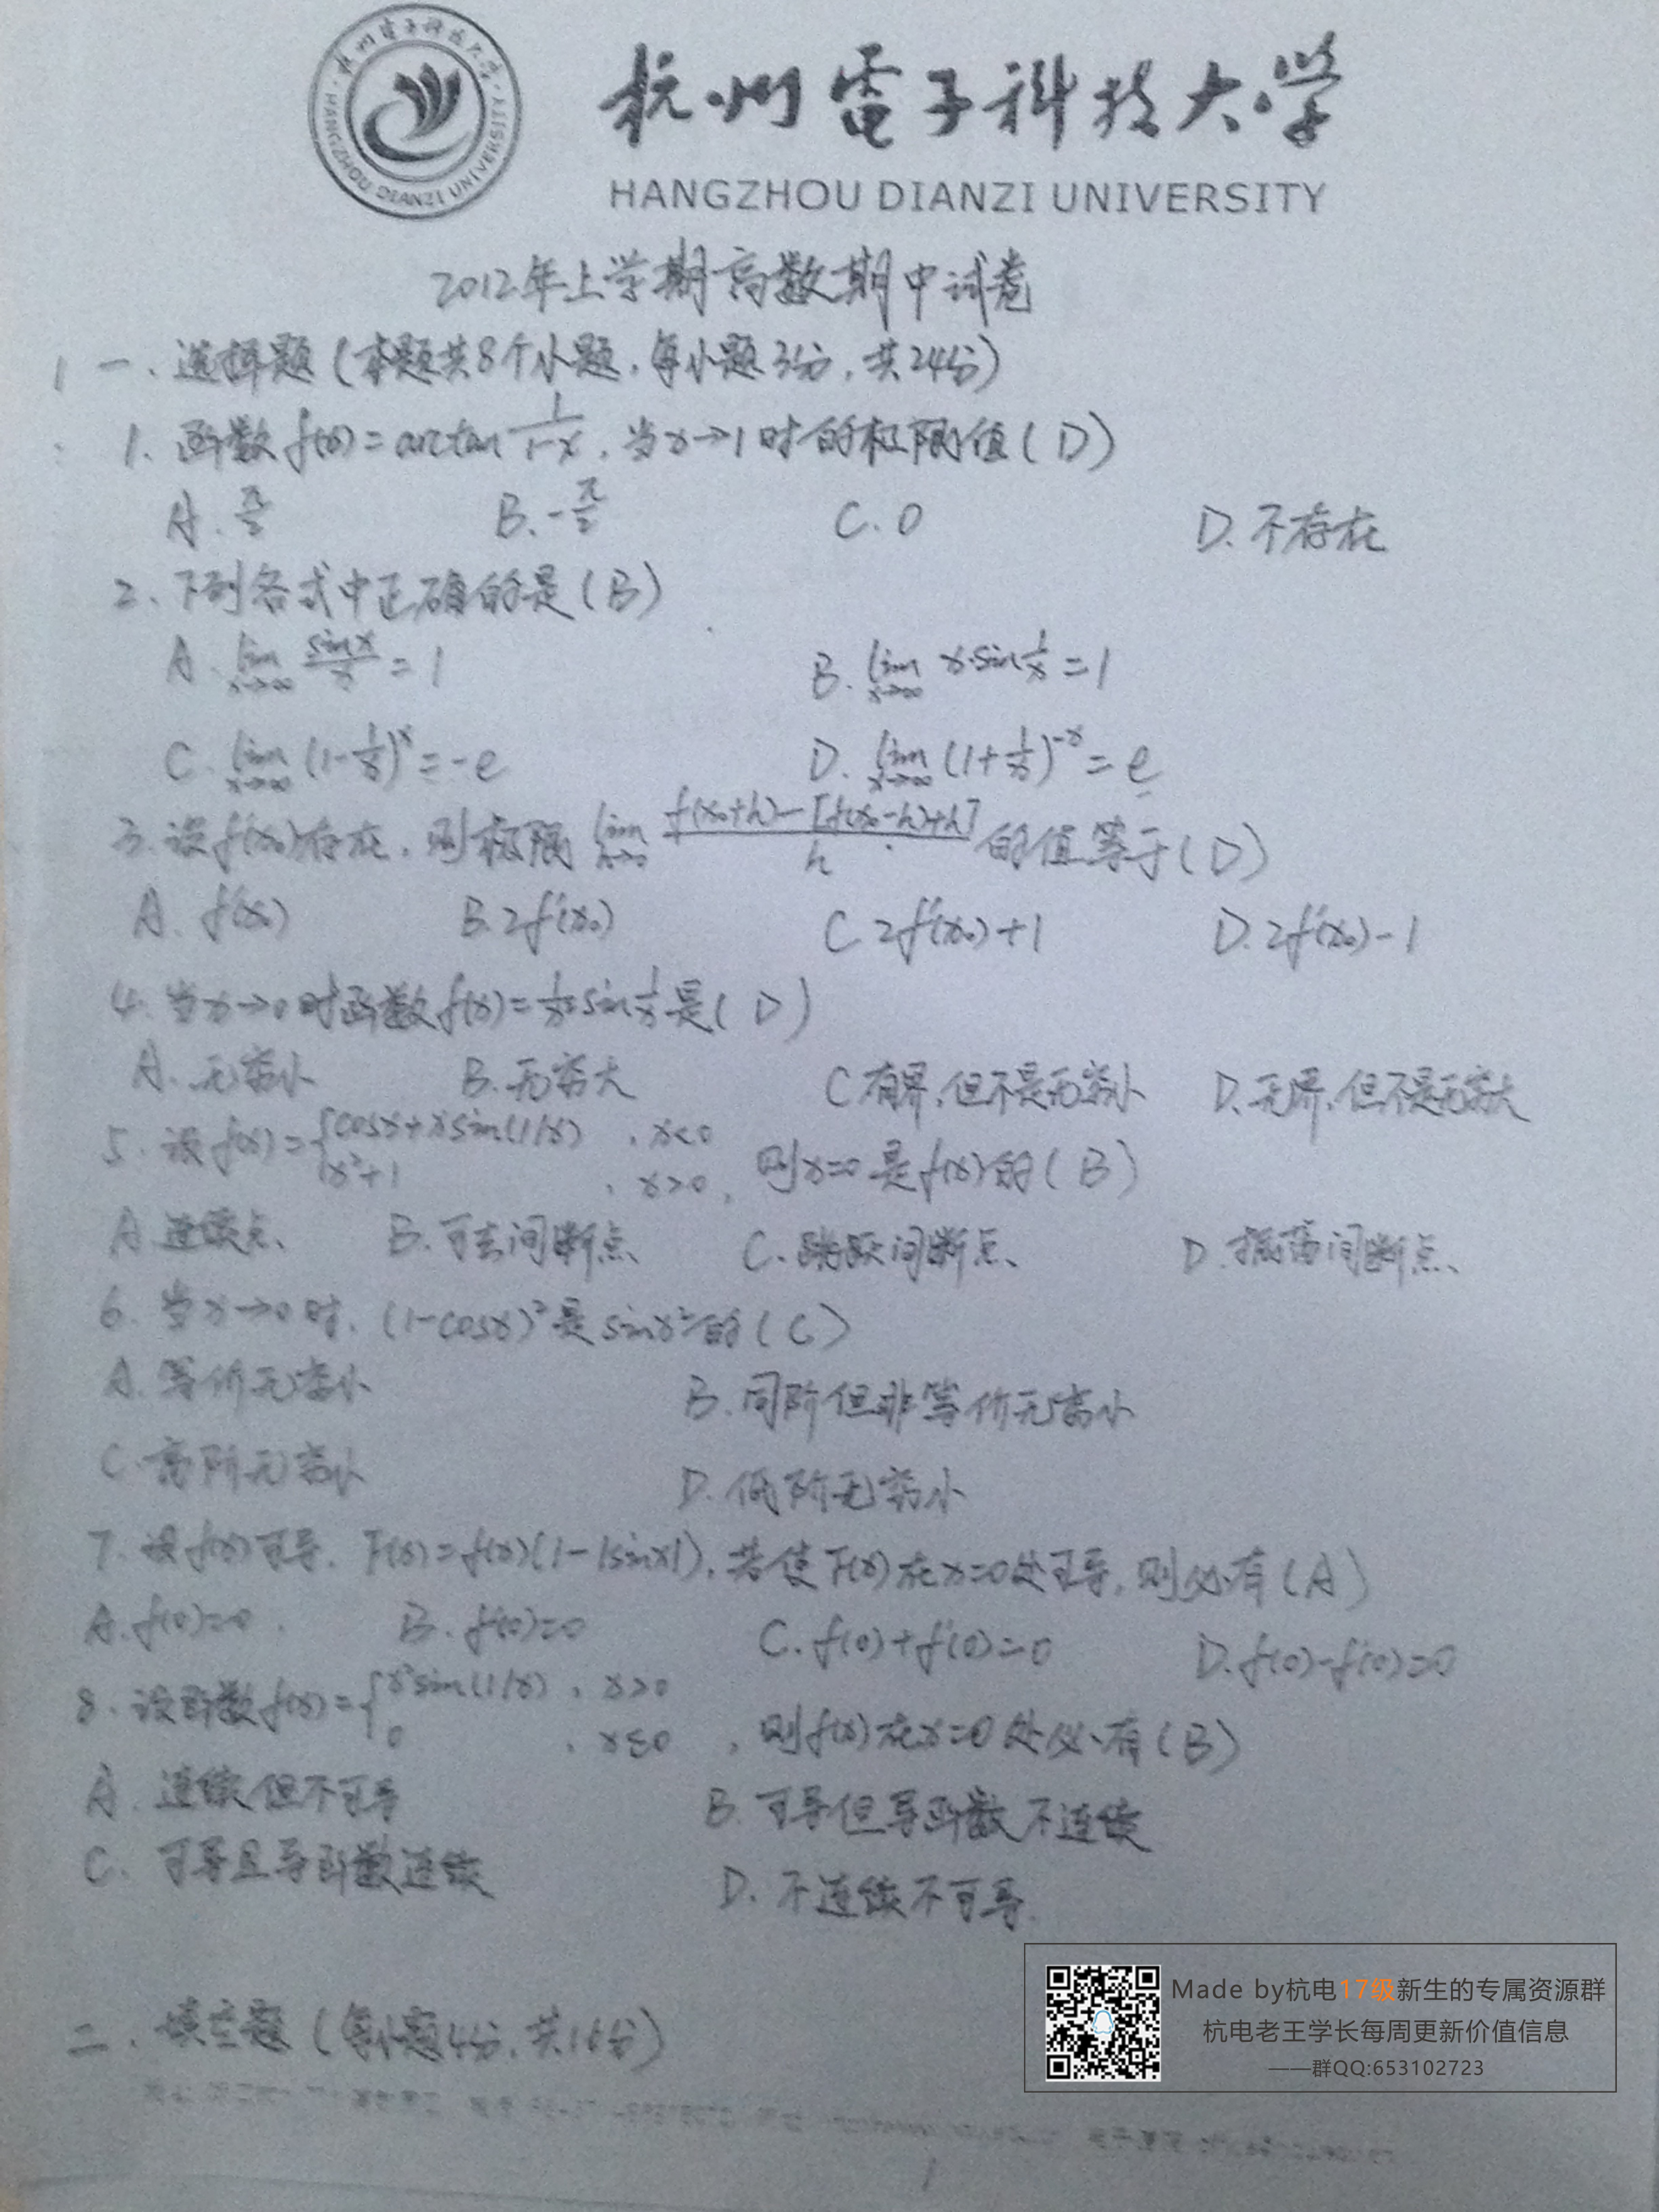 杭州電子科技大学
HANGZHOU DIANZI UNIVERSITY
杭州电子科技大学
HANGZHOU DIANZI UNIVERSITY
2012年上学期高数期中试卷
一、选择题(本题共8个小题,每小题3分,共24分)
1. 函数f(x)=arctan 1/(1-x),当x→1时的极限值(D)
A. π/2 B. -π/2 C. 0 D. 不存在
2、下列各式中正确的是(B)
A. lim x→∞ sinx/x = 1 B. lim x→∞ x·sin 1/x = 1
C. lim x→∞ (1-1/x)^x = -e D. lim x→∞ (1+1/x)^-x = e
3. 设f'(x₀)存在,则极限 lim h→0 f(x₀+h)-[f(x₀-h)+h] / h 的值等于(D)
A. f'(x₀) B. 2f'(x₀) C. 2f'(x₀)+1 D. 2f'(x₀)-1
4. 当x→0时函数f(x)=1/x² sin 1/x 是(D)
A. 无穷小 B. 无穷大 C. 有界,但不是无穷小 D. 无界,但不是无穷大
5. 设f(x)={cosx+xsin(1/x) , x<0
x²+1 , x>0, 则x=0是f(x)的(B)
A. 连续点、 B. 可去间断点、 C. 跳跃间断点、 D. 振荡间断点、
6. 当x→0时,(1-cosx)²是sinx²的(C)
A. 等价无穷小 B. 同阶但非等价无穷小
C. 高阶无穷小 D. 低阶无穷小
7. 设f(x)可导,F(x)=f(x)(1-|sinx|),若使F(x)在x=0处可导,则必有(A)
A. f(0)=0. B. f'(0)=0 C. f(0)+f'(0)=0 D. f(0)-f'(0)=0
8. 设函数f(x)={x²sin(1/x) , x>0
0 , x≤0 , 则f(x)在x=0处必有(B)
A. 连续但不可导 B. 可导但导函数不连续
C. 可导且导函数连续 D. 不连续不可导.
二、填空题(每小题4分,共16分)
Made by杭电17级新生的专属资源群
杭电老王学长每周更新价值信息
——群QQ:653102723
1